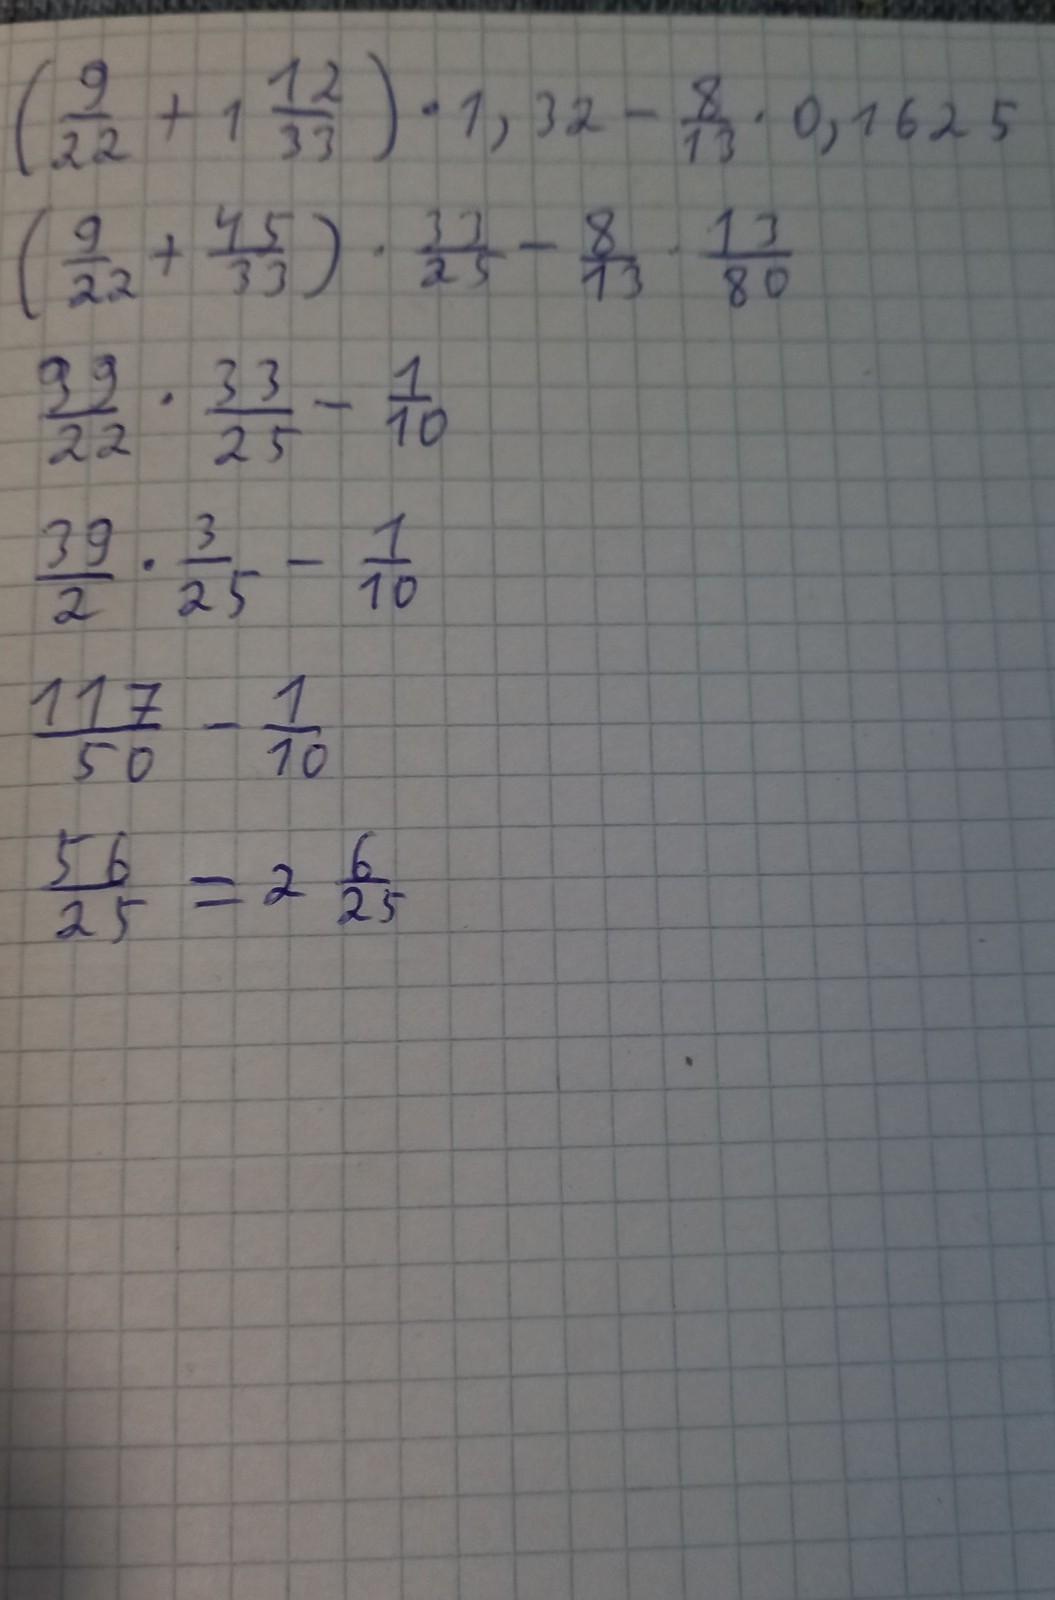 (9/22 + 1 12/33) · 1,32 - 8/13 · 0,1625
(9/22 + 45/33) · 33/25 - 8/13 · 13/80
39/22 · 33/25 - 1/10
39/2 · 3/25 - 1/10
117/50 - 1/10
56/25 = 2 6/25